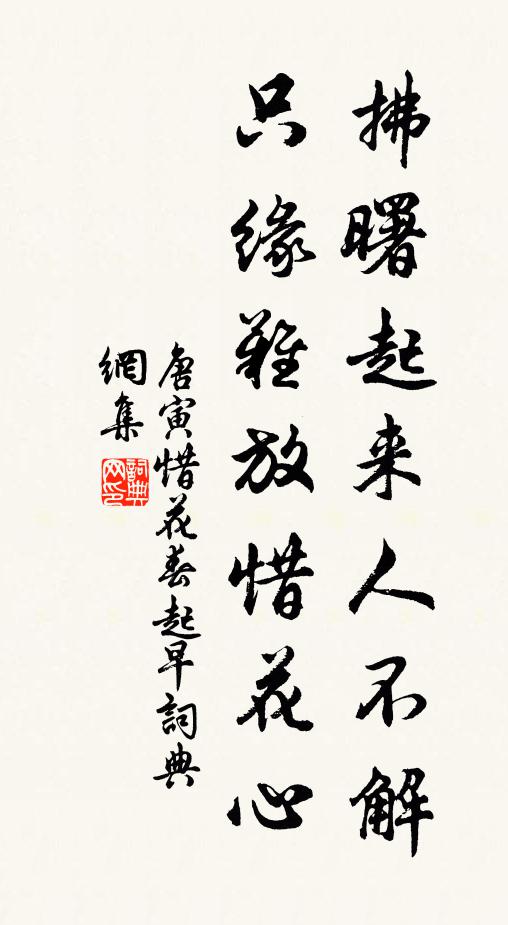 拂曙起来人不解
只缘難放惜花心
唐寅惜花春起早詞典
網集
詞典
网印